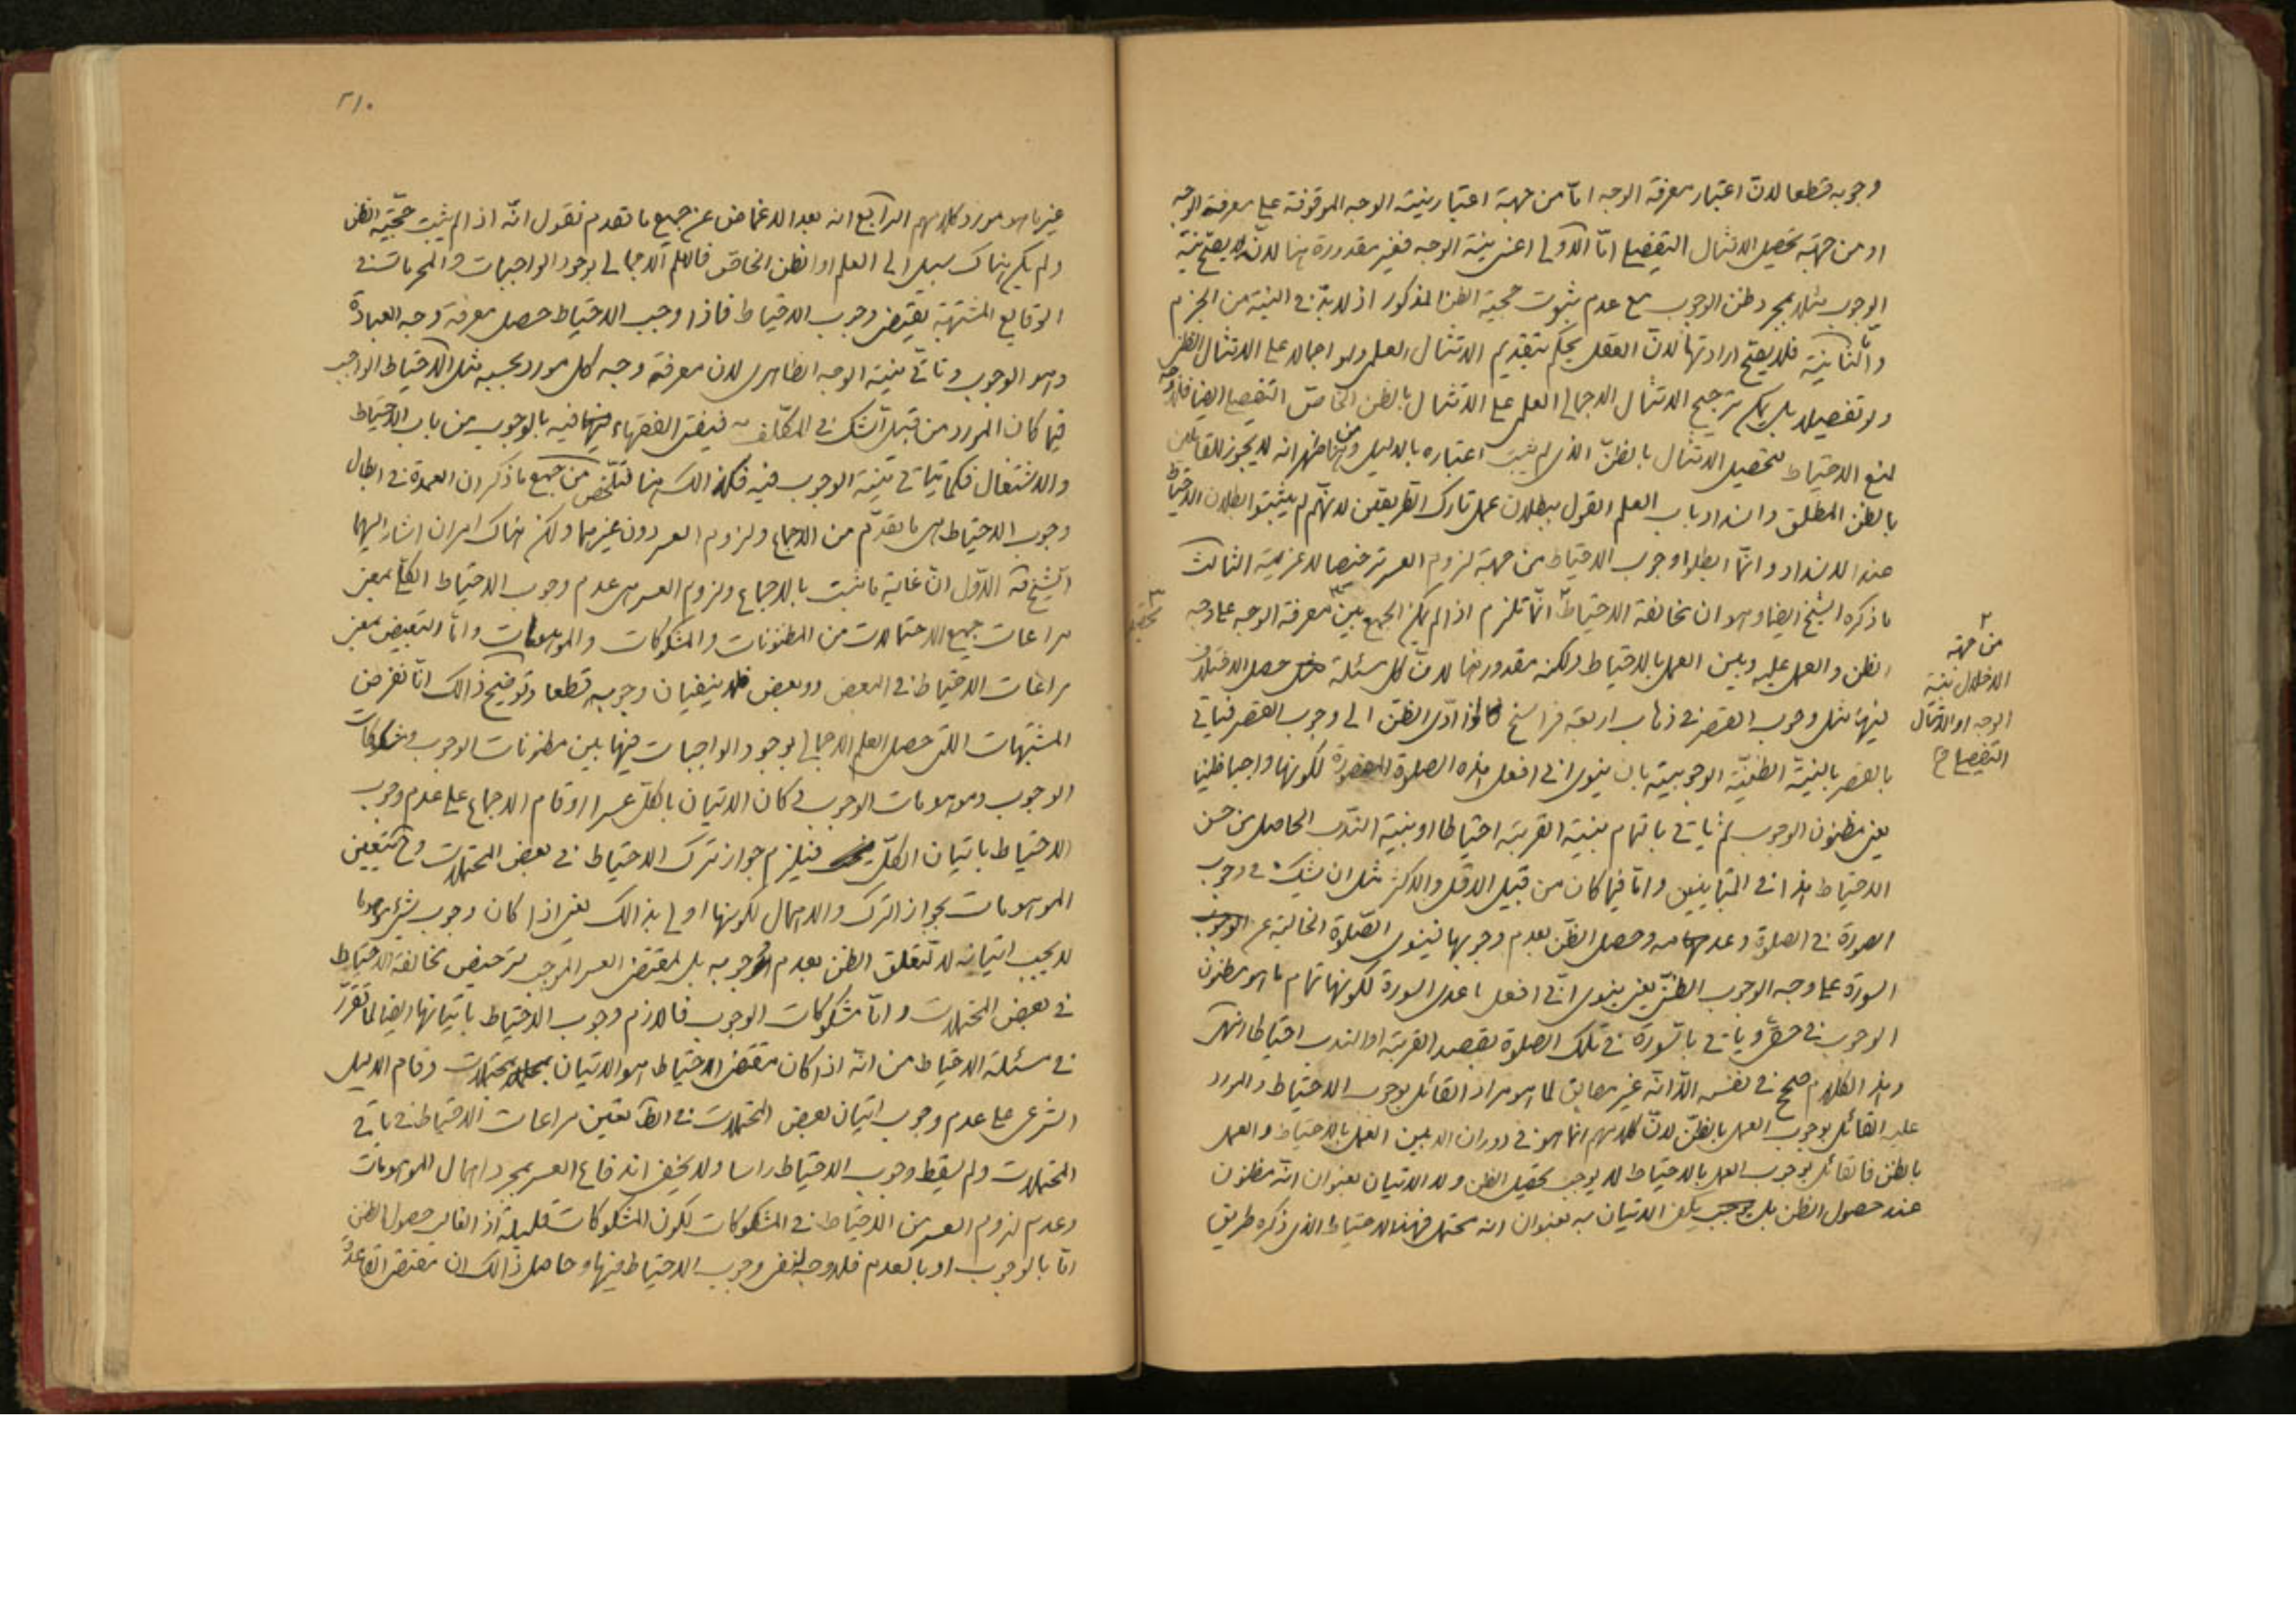 وجوبه قطعا لانّ اعتبار معرفة الوجه امّا من جهة اعتبار نيته الوجه الموقوفة على معرفة الوجه
او من جهة تحصيل الامتثال التفصيلى امّا الاولى اعنى نية الوجه فغير مقدورة هنا لانّه لا يصحّ نية
الوجوب مثلا بمجرد ظن الوجوب مع عدم ثبوت حجية الظن المذكور اذ لا بدّ فى النية من الجزم
وامّا الثانية فلا يصحّ ارادتها لانّ العقل يحكم بتقديم الامتثال العلمى ولو اجمالا على الامتثال الظنى
ولو تفصيلا بل يمكن ترجيح الامتثال الاجمالى العلمى على الامتثال بالظن الخاصّ التفصيلى ايضا فلا وجه
لمنع الاحتياط لتحصيل الامتثال بالظنّ الذى لم يثبت اعتباره بالدليل ومن هنا ظهر انه لا يجوز للقائلين
بالظن المطلق وانسداد باب العلم القول ببطلان عمل تارك الطريقين لانّهم لم يثبتوا بطلان الاحتياط
عند الانسداد وانّما ابطلوا وجوب الاحتياط من جهة لزوم العسر ترخيصا لا عزيمة الثالث
ما ذكره الشيخ ايضا وهو ان مخالفة الاحتياط انّما تلزم اذا لم يمكن الجمع بين معرفة الوجه على وجه
الظن والعمل عليه وبين العمل بالاحتياط ولكنه مقدور هنا لانّ كل مسئلة حصل الاختلاف
فيها مثل وجوب القصر فى ذهاب اربعة فراسخ اذا ادّى الظنّ الى وجوب القصر فياتى
بالقصر بالنيّة الظنّيّة الوجوبية بان ينوى انى افعل هذه الصلوة المقصورة لكونها واجبا ظنيا
يعنى مظنون الوجوب ثم ياتى بالتمام بنية القربة احتياطا او بنية الندب الحاصل من حسن
الاحتياط هذا فى المتباينين وامّا فيما كان من قبيل الاقل والاكثر مثل ان يشك فى وجوب
السورة فى الصلوة وعدمه وحصل الظن بعدم وجوبها فينوى الصّلوة الخالية عن
السورة على وجه الوجوب الظنّى يعنى ينوى انّى افعل ما عدى السورة لكونها تمام ما هو مظنون
الوجوب فى حقى وياتى بالسورة فى تلك الصلوة بقصد القربة او الندب احتياطا انتهى
وهذا الكلام صحيح فى نفسه الّا انّه غير مطابق لما هو مراد القائل بوجوب الاحتياط والمورد
عليه القائل بوجوب العمل بالظنّ لانّ كلامهم انما هو فى دوران الامر بين العمل بالاحتياط والعمل
بالظن فالقائل بوجوب العمل بالاحتياط لا يوجب تحصيل الظن ولا الاتيان بعنوان انّه مظنون
عند حصول الظن بل يكفى الاتيان به بعنوان انه محتمل فهذا الاحتياط الذى ذكره طريق
من جهة
الاخلال بنية
الوجه او الامتثال
التفصيلى
٢١٠
غير ما هو مورد كلامهم الرابع انه بعد الاغماض عن جميع ما تقدم نقول انّه اذا لم يثبت حجّيّة الظن
ولم يكن هناك سبيل الى العلم او الظن الخاصّ فالعلم الاجمالى بوجود الواجبات والمحرمات فى
الوقايع المشتبهة يقتضى وجوب الاحتياط فاذا وجب الاحتياط حصل معرفة وجه العبادة
وهو الوجوب وتاتّى نيّة الوجه الظاهرى لان معرفة وجه كل مورد بحسبه مثل الاحتياط الواجب
فيما كان المورد من قبيل الشك فى المكلّف به فيفتى الفقهاء فيه بالوجوب من باب الاحتياط
والاشتغال فكما يتاتى نيّة الوجوب فيه فكذالك هنا فتلخّص من جميع ما ذكر ان العمدة فى ابطال
وجوب الاحتياط هى ما تقدّم من الاجماع ولزوم العسر دون غيرهما ولكن هناك امران اشار اليهما
الشيخ ره الاوّل انّ غاية ما ثبت بالاجماع ولزوم العسر هى عدم وجوب الاحتياط الكلّى بمعنى
مراعات جميع الاحتمالات من المظنونات والمشكوكات والموهومات وامّا التبعيض بمعنى
مراعات الاحتياط فى البعض دون بعض فلا ينفيان وجوبه قطعا وتوضيح ذالك انّا نفرض
المشتبهات اللتى حصل العلم الاجمالى بوجود الواجبات فيها بين مظنونات الوجوب ومشكوكات
الوجوب وموهومات الوجوب فكان الاتيان بالكلّ عسرا او قام الاجماع على عدم وجوب
الاحتياط باتيان الكلّ فيلزم جواز ترك الاحتياط فى بعض المحتملات وح تتعين
الموهومات بجواز الترك والاهمال لكونها اولى بذالك يعنى اذا كان وجوب شىء موهوما
لا يجب اتيانه لا لتعلق الظن بعدم وجوبه بل لمقتضى العسر الموجب ترخيص مخالفة الاحتياط
فى بعض المحتملات وامّا مشكوكات الوجوب فاللازم وجوب الاحتياط باتيانها ايضا لما تقرّر
فى مسئلة الاحتياط من انّه اذا كان مقتضى الاحتياط هو الاتيان بمحتملات وقام الدليل
الشرعى على عدم وجوب اتيان بعض المحتملات فى الظاهر تعين مراعات الاحتياط فى باقى
المحتملات ولم يسقط وجوب الاحتياط راسا ولا يخفى اندفاع العسر بمجرد اهمال الموهومات
وعدم لزوم العسر من الاحتياط فى المشكوكات لكون المشكوكات قليلة اذ الغالب حصول الظن
امّا بالوجوب او بالعدم فلا وجه لنفى وجوب الاحتياط فيها وحاصل ذالك ان مقتضى القاعدة